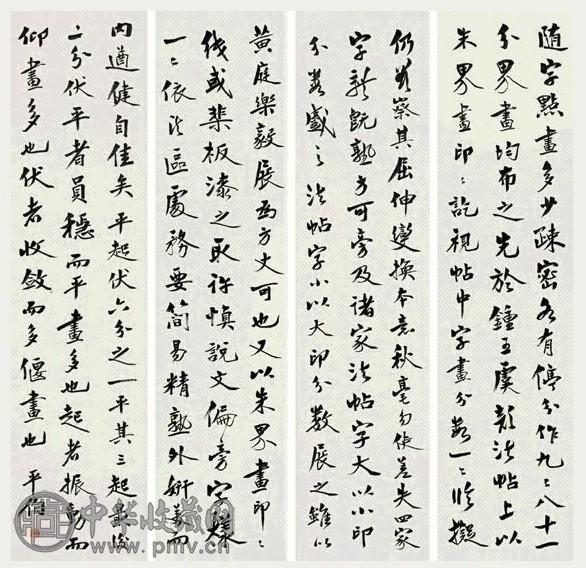 隨字點畫多少疎密各有停分作九〻八十一
分界畫均布之先於鍾王虞顏法帖上以
朱界畫印〻訖視帖中字畫分數一〻臨擬
仍察其屈伸變換本意秋毫勿使差失四家
字既熟方可旁及諸家法帖字大以小印
分數蹙之法帖字小以大印分數展之雖以
黃庭樂毅展為方丈可也又以朱界畫印〻
或棐板漆之取許慎說文偏旁字樣
一〻依法區處務要簡易精熟外妍美而
內遒健自佳矣平起伏六分之一平其三起
二分伏平者員穩而平畫多也起者振動而
仰畫多也伏者收斂而多偃畫也 平
中华收藏网
www.pmv.cn